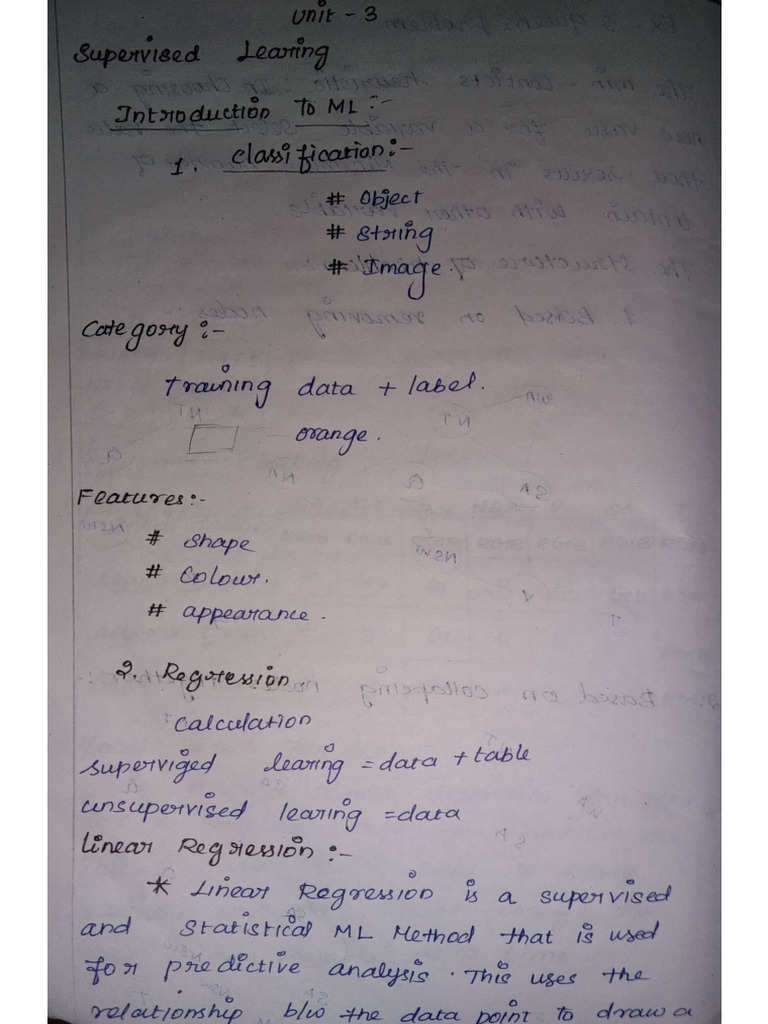 Unit - 3
Supervised Learing
Introduction To ML :-
1. Classification:-
# Object
# String
# Image.
Category :-
training data + label.
orange.
Features:-
# shape
# Colour.
# appearance.
2. Regression.
Calculation
superviged learing = data + table
unsupervised learing = data
Linear Regression :-
* Linear Regression is a supervised
and Statistical ML Method that is used
for predictive analysis. This uses the
relationship b/w the data point to draw a